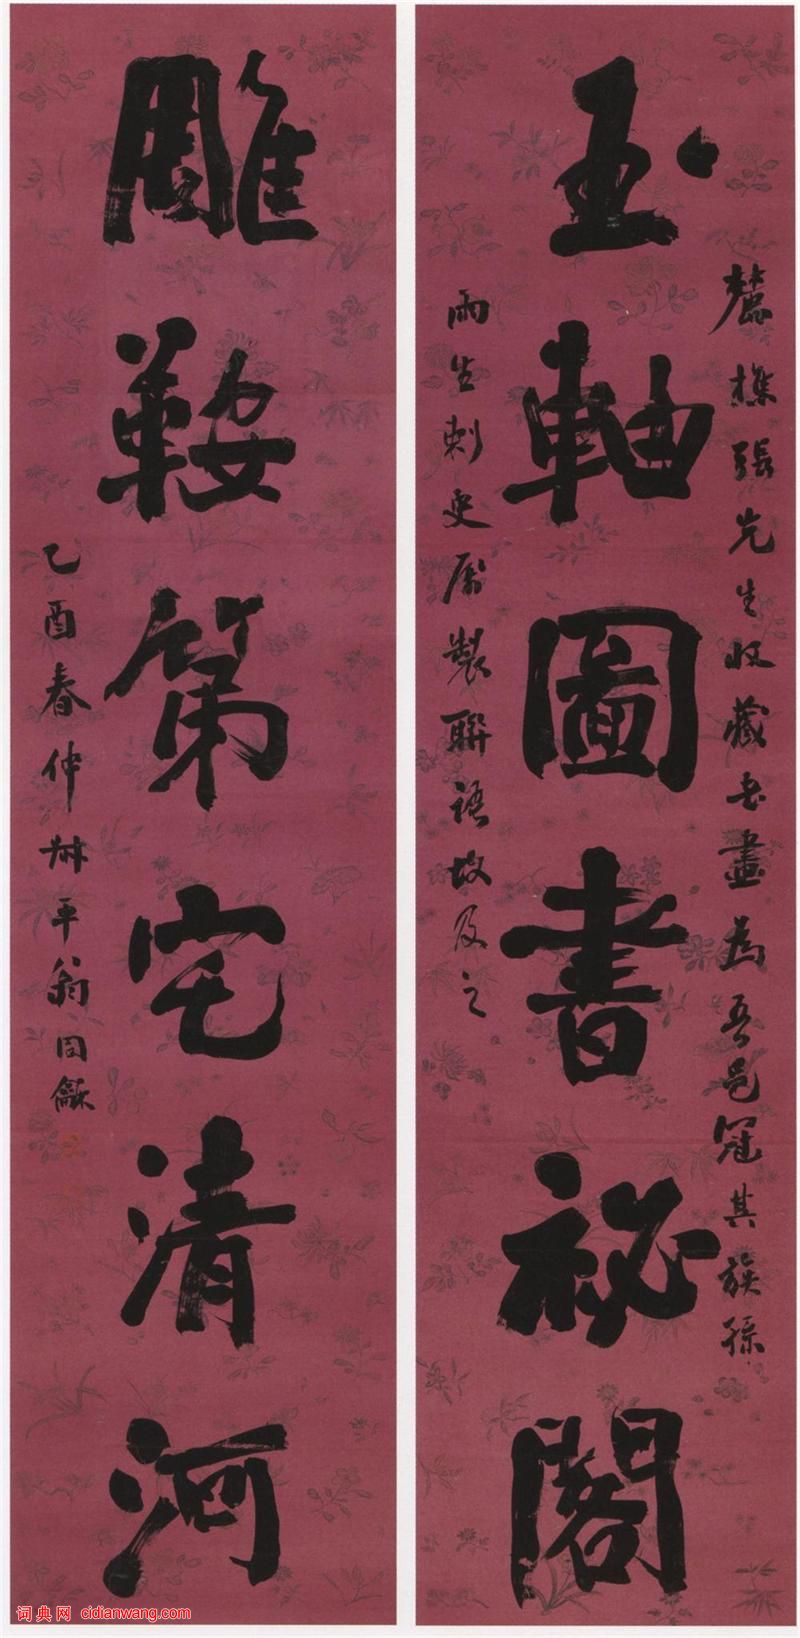 麓樵張先生收藏書畫為吾邑冠其族孫
玉軸圖書祕閣
雨生刺史屬製聯語故及之
雕鞍第宅清河
乙酉春仲叔平翁同龢
词典网 cidianwang.com